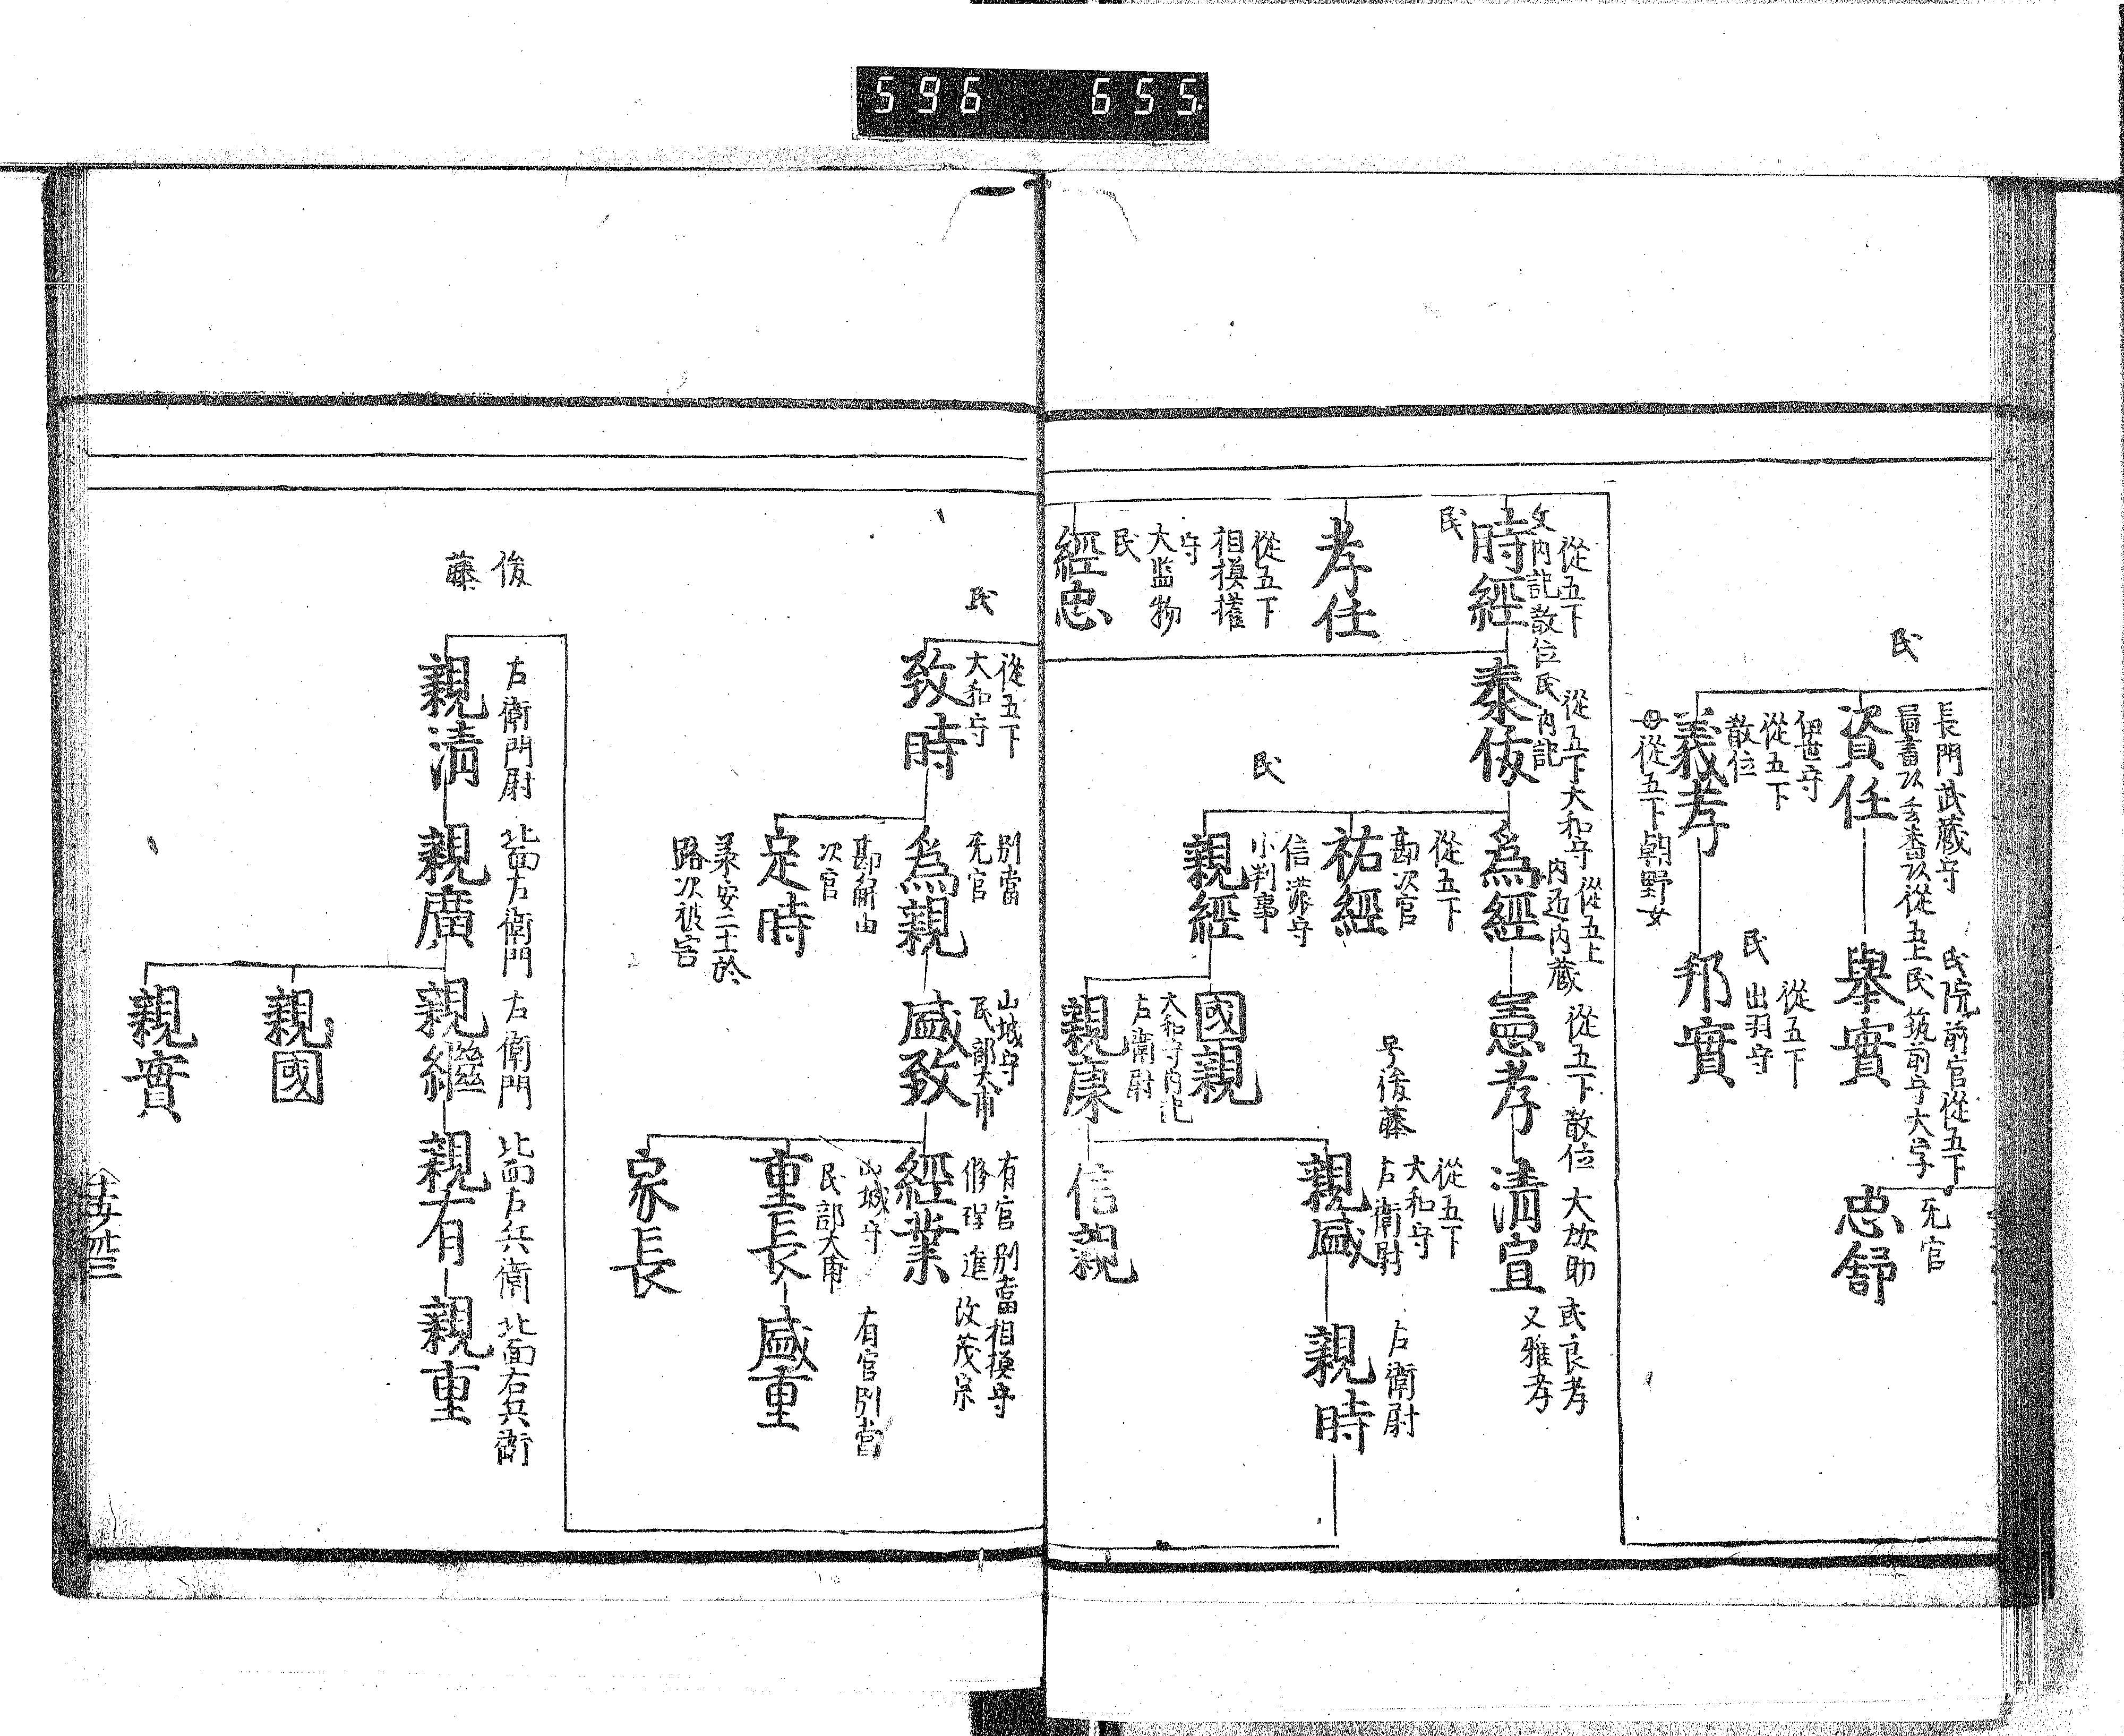 596 655
民
長門武蔵守
資任
伊世守
從五下
散位
義孝
母從五下朝野女
民院前官從五下
從五上民筑前守大学
擧實
從五下
出羽守
民
邦實
无官
忠舒
從五下
文内記散位民
時經
民
孝仕
從五下
相摸權
守
大监物
民
經忠
從五下大和守
内記
泰俊
從五上
内蔵
為經
從五下
勘次官
祐經
民
信濃守
小判事
親經
從五下散位
憲孝
大炊助
清宣
或良孝
又雅孝
國親
大和守内記
左衛尉
親康
号後藤
從五下
大和守
左衛尉
親盛
左衛尉
親時
信親
民
從五下
大和守
致時
別當
无官
為親
勘解由
次官
定時
路次被害
山城守
民部大甫
盛致
有官別當相摸守
修理進
改茂宗
經業
山城守
民部大甫
重長
有官別當
盛重
家長
後
藤
左衛門尉
親清
北面左衛門
親廣
左衛門
親繼
北面左兵衛
親有
北面右兵衛
親重
親國
親實